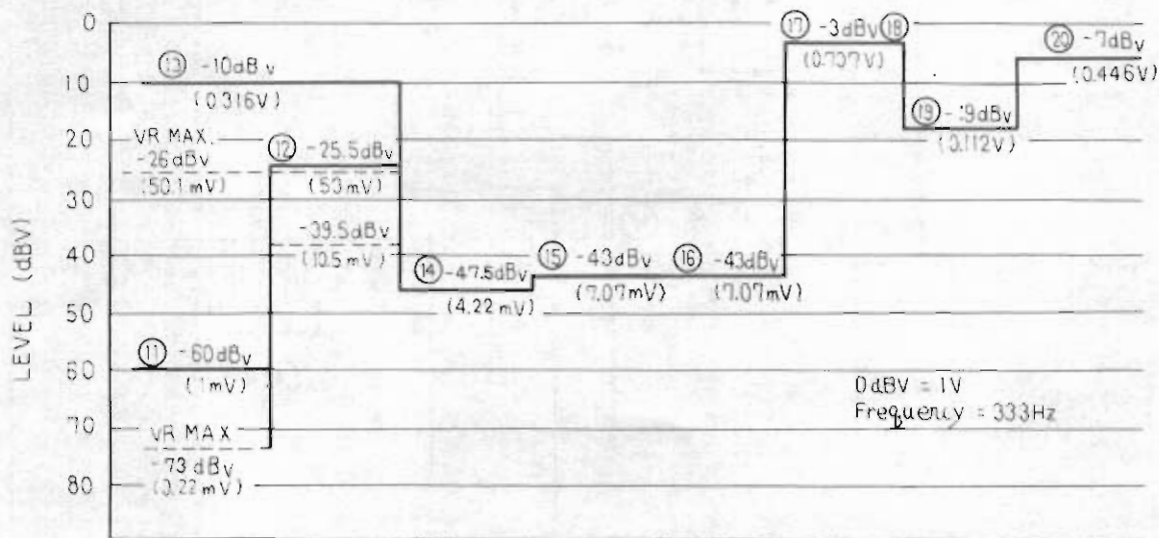 LEVEL (dBV)
0
10
20
30
40
50
60
70
80
⑬ -10dBv
(0.316V)
VR MAX.
-26dBv
(50.1mV)
⑫ -25.5dBv
(53mV)
-39.5dBv
(10.5mV)
⑪ -60dBv
(1mV)
VR MAX
-73dBv
(0.22mV)
⑭ -47.5dBv
(4.22mV)
⑮ -43dBv
(7.07mV)
⑯ -43dBv
(7.07mV)
⑰ -3dBv ⑱
(0.707V)
⑲ -19dBv
(0.112V)
⑳ -7dBv
(0.446V)
0dBV = 1V
Frequency = 333Hz